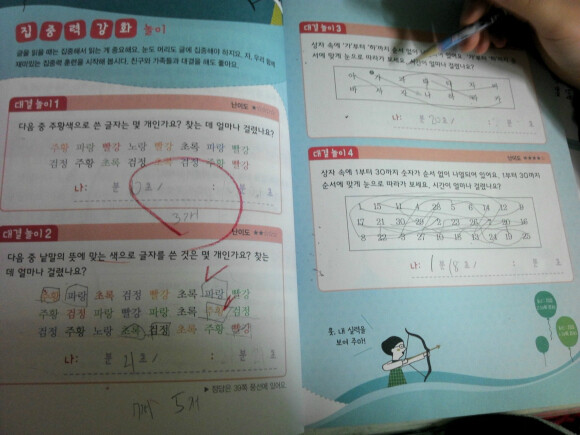 집중력강화 놀이
글을 읽을 때는 집중해서 읽는 게 중요해요. 눈도 머리도 글에 집중해야 하지요. 자, 우리 함께
재미있는 집중력 훈련을 시작해 봅시다. 친구와 가족들과 대결을 해도 좋아요.
대결 놀이 1
난이도
다음 중 주황색으로 쓴 글자는 몇 개인가요? 찾는 데 얼마나 걸렸나요?
주황 파랑 빨강 노랑 빨강 초록 파랑 빨강
검정 주황 초록 검정 초록 검정 주황 빨강
나: 분 초 / : 분 초
3개
대결 놀이 2
난이도
다음 중 낱말의 뜻에 맞는 색으로 글자를 쓴 것은 몇 개인가요? 찾는
데 얼마나 걸렸나요?
주황 파랑 초록 검정 빨강 초록 파랑 빨강
주황 검정 주황 빨강 파랑 초록 주황 검정
검정 주황 노랑 초록 검정 초록 주황 빨강
나: 분 초 / : 분 초
정답은 39쪽 풍선에 있어요
5개
대결 놀이 3
상자 속에 '가'부터 '하'까지 순서 없이
서에 맞게 눈으로 따라가 보세요. 시간이 얼마나 걸렸나요?
나: 분 20초 / : 분 초
대결 놀이 4
난이도
상자 속에 1부터 30까지 숫자가 순서 없이 나열되어 있어요. 1부터 30까지
순서에 맞게 눈으로 따라가 보세요. 시간이 얼마나 걸렸나요?
1 15 11 4 28 5 6 14 12 9
17 21 30 29 2 23 25 7 20 16
8 22 3 27 10 18 13 24 19 26
나: 1분 18초 / : 분 초
훗, 내 실력을
보여 주마!